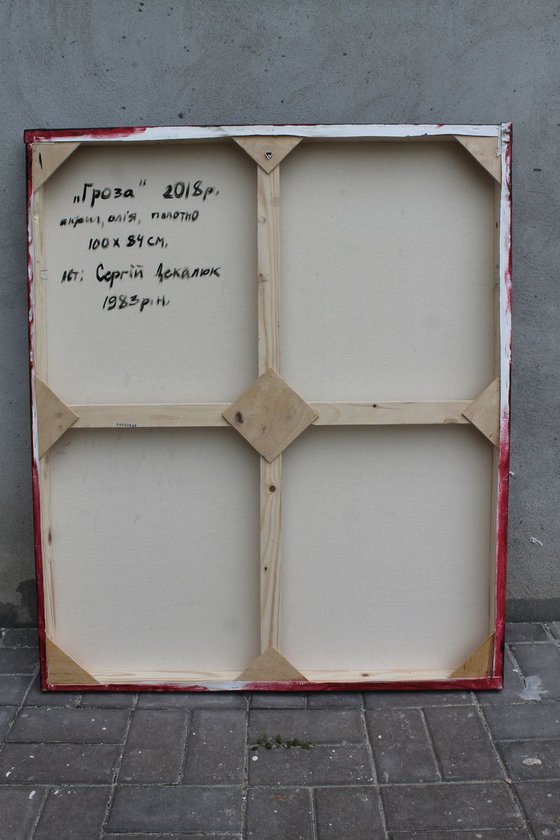 „Гроза" 2018р.
акрил, олія, полотно
100 х 84 см.
Сергій
1983 р.н.